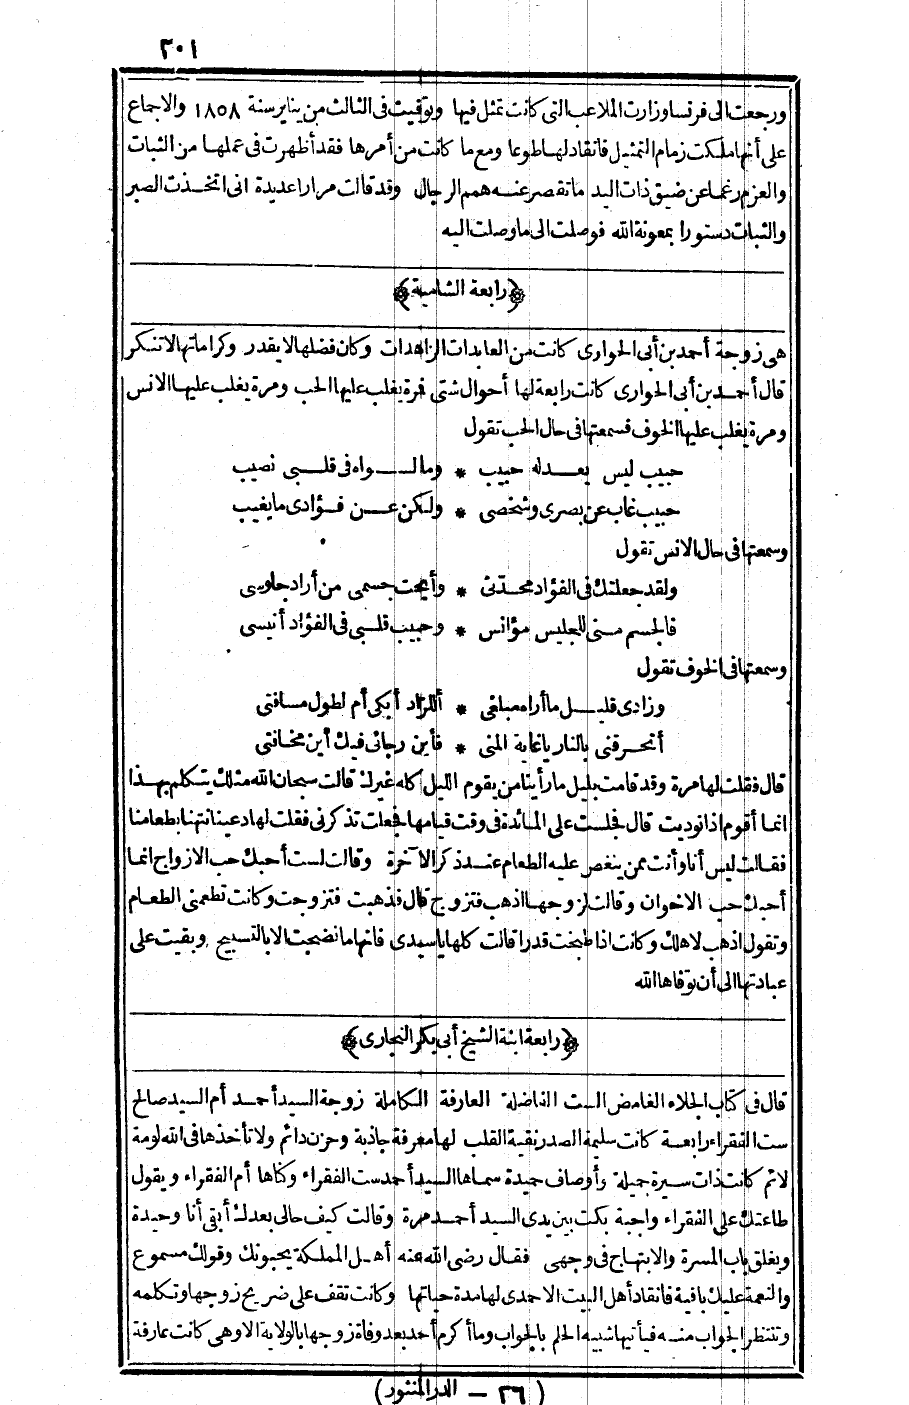 ٢٠١
ورجعت الى فرنسا وزارت الملاعب التى كانت تمثل فيها وتوفيت فى الثالث من يناير سنة ١٨٥٨ والاجماع
على أنها ملكت زمام التمثيل فانقاد لها طوعا ومع ما كانت من أمرها فقد أظهرت فى عملها من الثبات
والعزم رغما عن ضيق ذات اليد ما تقصر عنه همم الرجال وقد قالت مرارا عديدة انى اتخذت الصبر
والثبات دستورا بمعونة الله فوصلت الى ما وصلت اليه
﴿رابعة الشامية﴾
هى زوجة أحمد بن أبى الحوارى كانت من العابدات الزاهدات وكان فضلها لا يقدر وكراماتها لا تنكر
قال أحمد بن أبى الحوارى كانت رابعة لها أحوال شتى فرة يغلب عليها الحب ومرة يغلب عليها الانس
ومرة يغلب عليها الخوف فسمعتها فى حال الحب تقول
حبيب ليس يعدله حبيب * وما لسواه فى قلبى نصيب
حبيب غاب عن بصرى وشخصى * ولكن عن فؤادى ما يغيب
وسمعتها فى حال الانس تقول
ولقد جعلتك فى الفؤاد محدثى * وأبحت جسمى من أراد جلوسى
فالجسم منى للجليس مؤانس * وحبيب قلبى فى الفؤاد أنيسى
وسمعتها فى الخوف تقول
وزادى قليل ما أراه مبلغى * أللزاد أبكى أم لطول مسافتى
أتحرقنى بالنار يا غاية المنى * فأين رجائى فيك أين مخافتى
قال فقلت لها مرة وقد قامت بليل ما رأينا من يقوم الليل كله غيرك قالت سبحان الله مثلك يتكلم بهذا
انما أقوم اذا نوديت قال فجلست على المائدة فى وقت قيامها فجعلت تذكرنى فقلت لها دعينا نتهنا بطعامنا
فقالت ليس أنا وأنت ممن ينغص عليه الطعام عند ذكر الآخرة وقالت لست أحبك حب الازواج انما
أحبك حب الاخوان وقالت لزوجها اذهب فتزوج قال فذهبت فتزوجت وكانت تطعمنى الطعام
وتقول اذهب لاهلك وكانت اذا طبخت قدرا قالت كلها يا سيدى فانها ما نضجت الا بالتسبيح وبقيت على
عبادتها الى أن توفاها الله
﴿رابعة ابنة الشيخ أبى بكر النجارى﴾
قال فى كتاب الجلاء الغامض الست الفاضلة العارفة الكاملة زوجة السيد أحمد أم السيد صالح
ست الفقراء رابعة كانت سليمة الصدر نقية القلب لها معرفة جاذبة وحزن دائم ولا تأخذها فى الله لومة
لائم كانت ذات سيرة جميلة وأوصاف حميدة سماها السيد أحمد ست الفقراء وكناها أم الفقراء ويقول
طاعتك على الفقراء واجبة بكت بين يدى السيد أحمد مرة وقالت كيف حالى بعدك أبقى أنا وحيدة
ويغلق باب المسرة والابتهاج فى وجهى فقال رضى الله عنه أهل المملكة يحبونك وقولك مسموع
والنعمة عليك باقية فانقاد أهل البيت الاحمدى لها مدة حياتها وكانت تقف على ضريح زوجها وتكلمه
وتنتظر الجواب منه فيأتيها شبيه الحلم بالجواب وما أكرم أحد بعد وفاة زوجها بالولاية الا وهى كانت عارفة
(٢٦ — الدر المنثور)